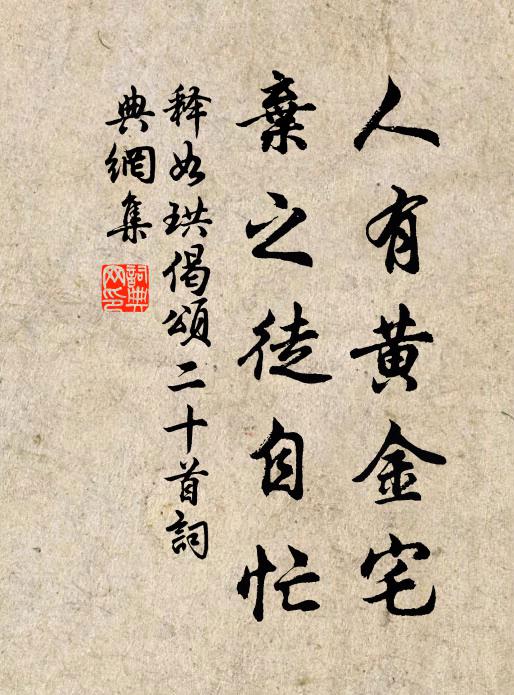 人有黄金宅
棄之徒自忙
释如珙偈頌二十首詞
典網集
詞典网印